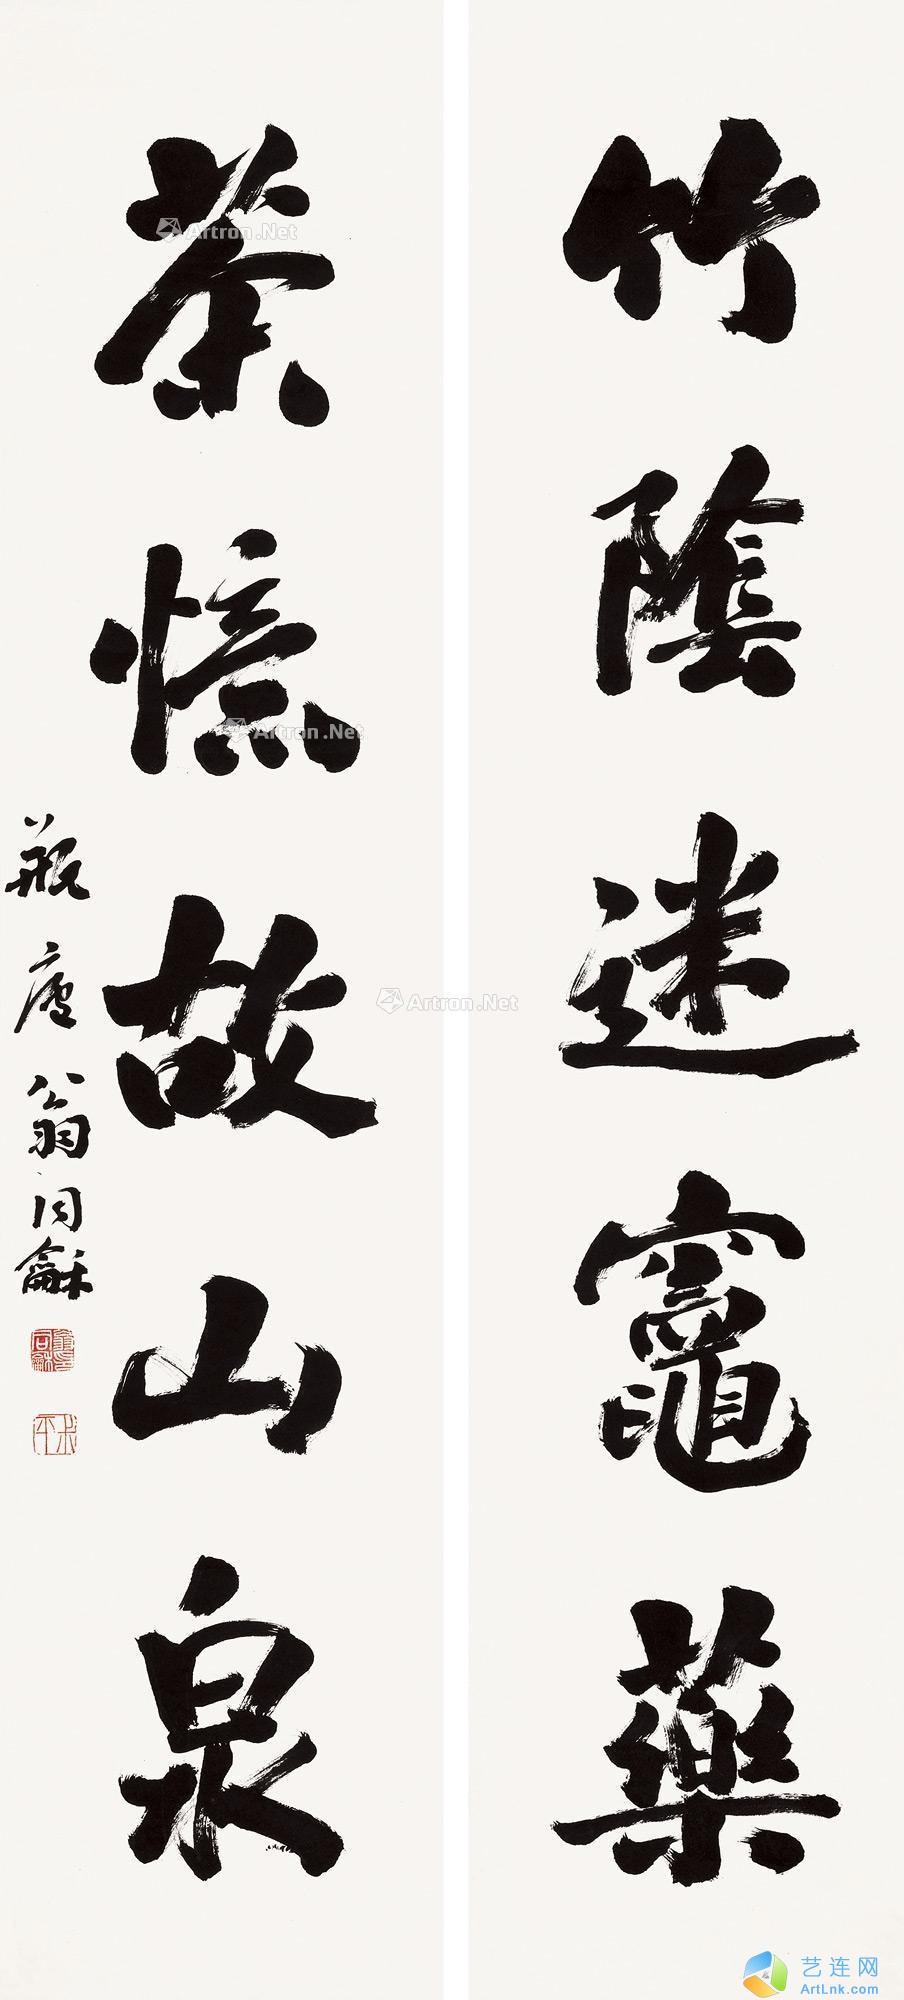 竹陰迷竈藥
茶憶故山泉
瓶廬翁同龢
翁同龢印
叔平
Artron.Net
Artron.Net
Artron.Net
艺连网
ArtLnk.com